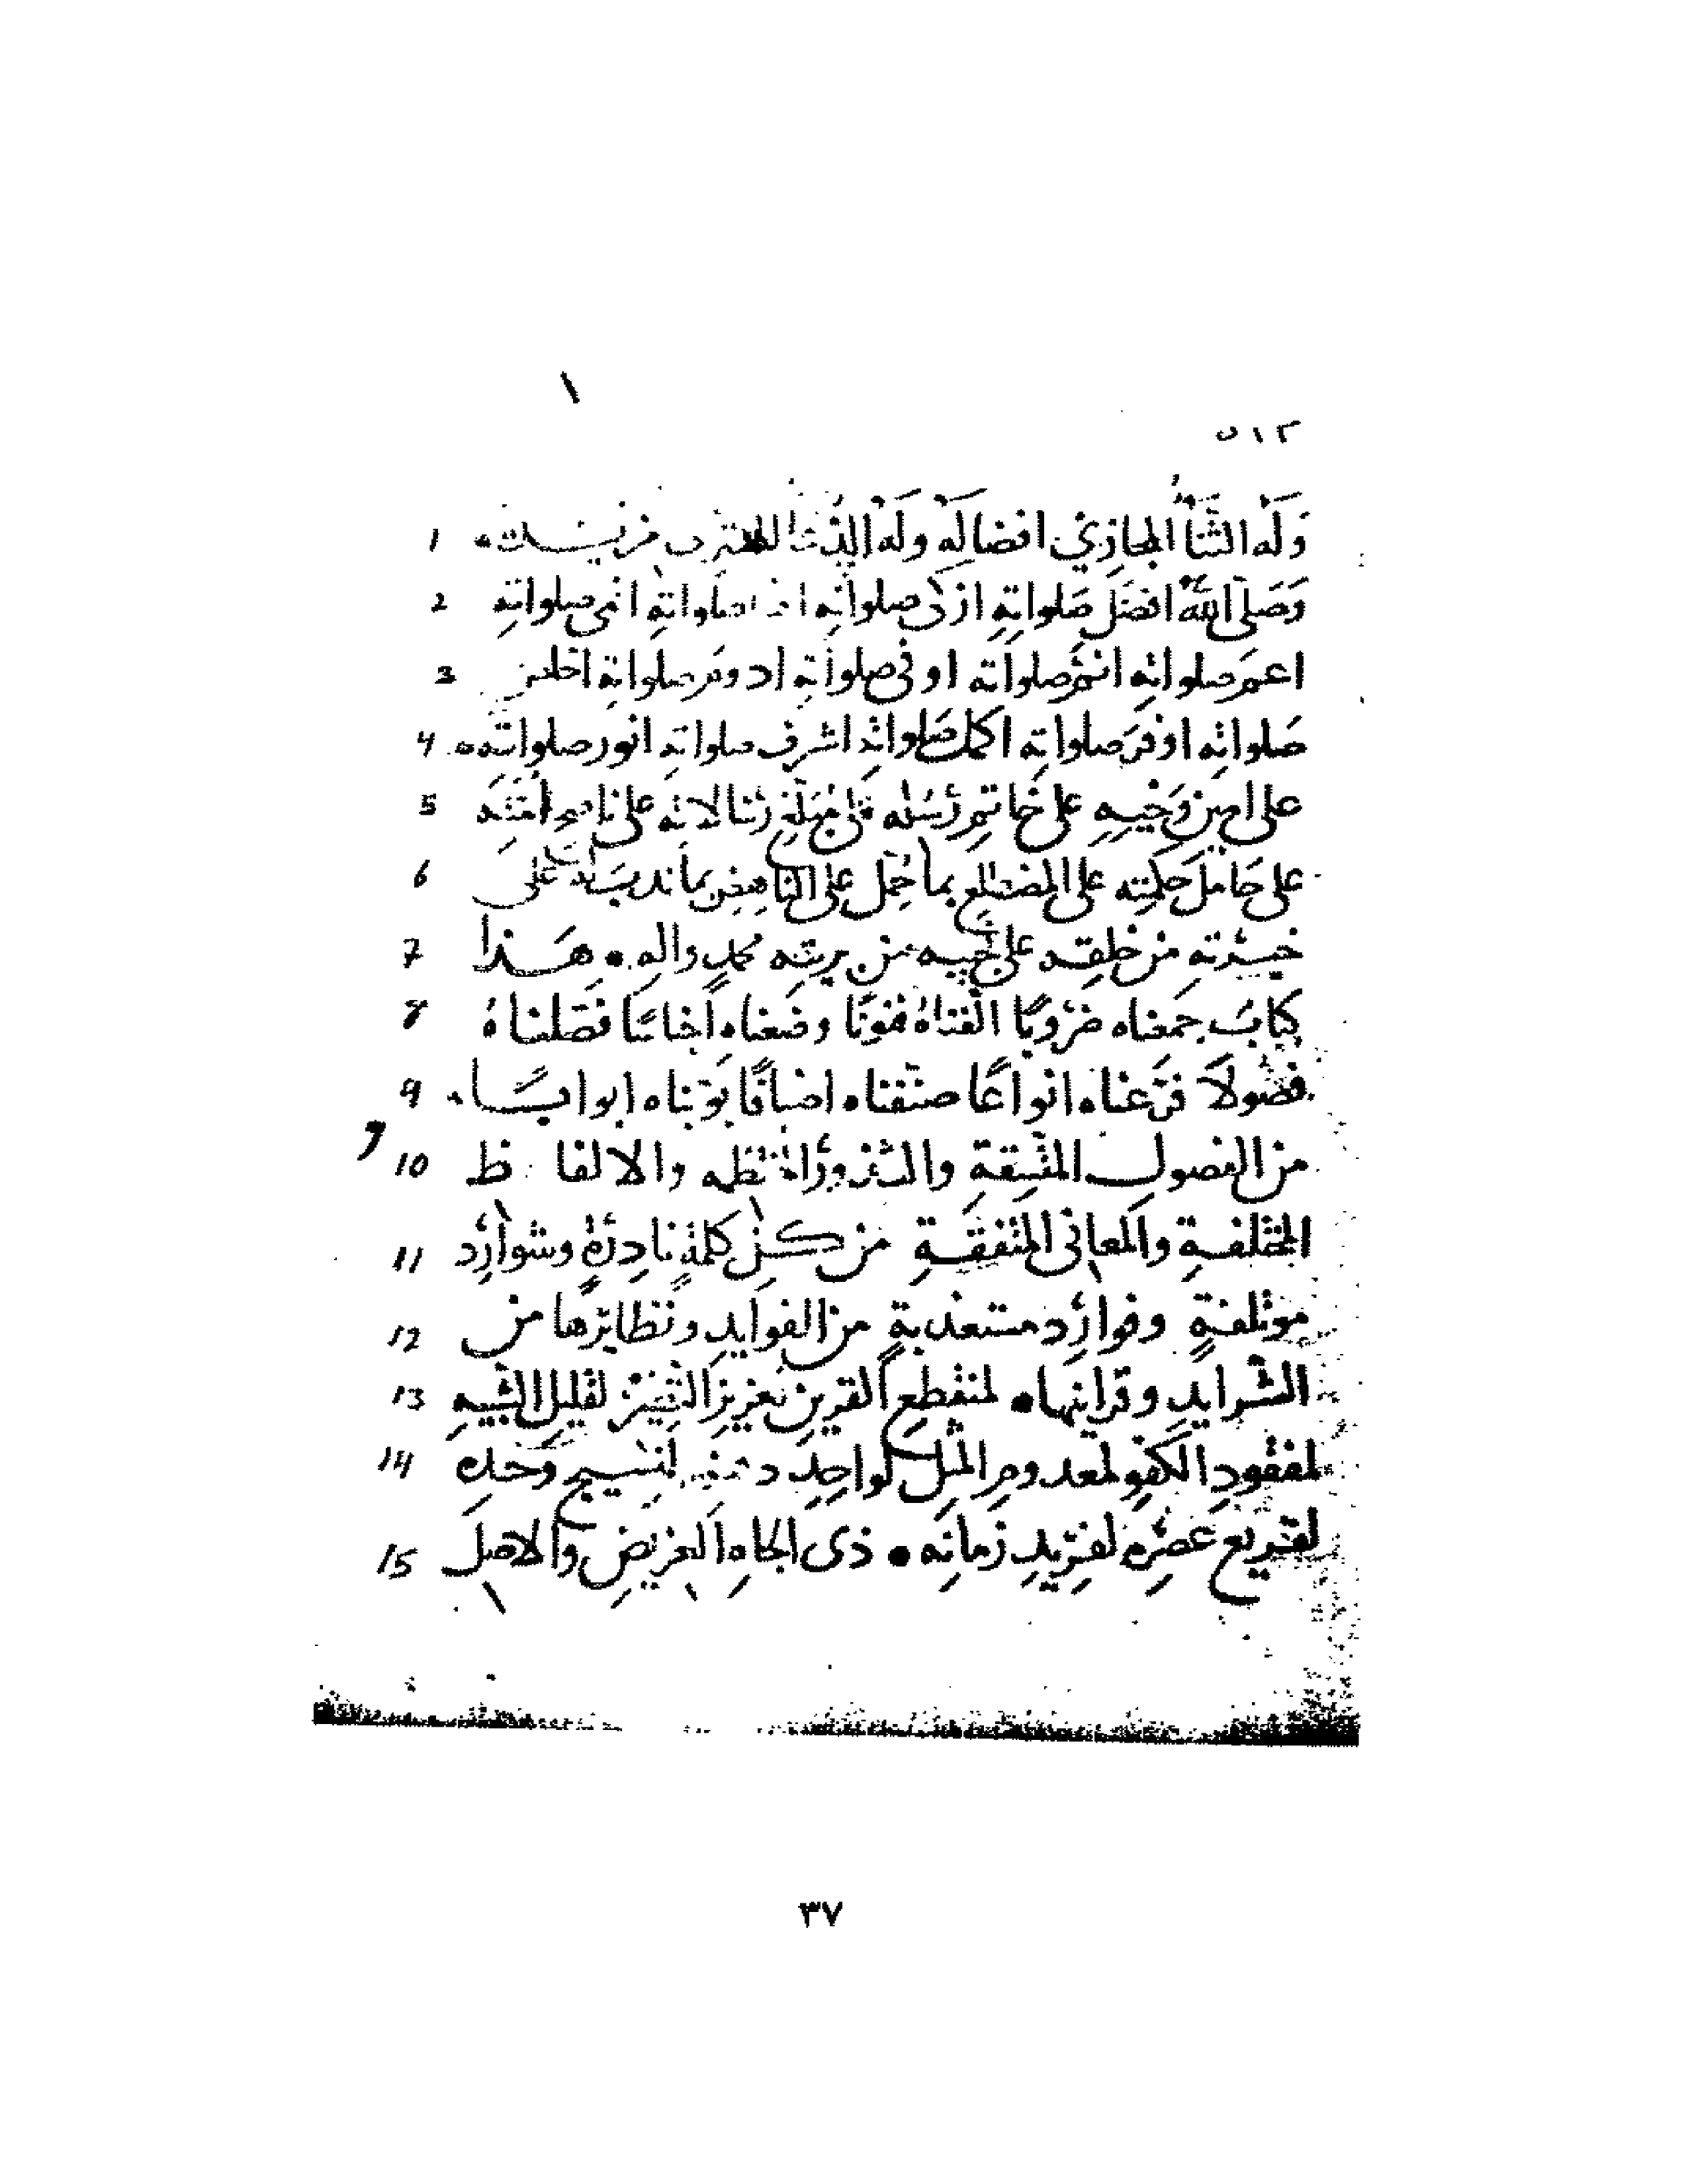 ١
٥١٢
وَلَهُ الثَّنَاُ المجازي افضالَهُ وَلَهُ من
وَصَلى اللهُ افضَلَ صَلواتِهِ ازكى صلواتِه صلواتِهِ انمى صلواتِهِ 2
اعمَ صلواتِه اتمَّ صلواته اوفى صلواتِه ادومَ صلواتِهِ اخلص 3
صَلواتِه اوفرَ صلواتِه اكمل صَلواتِه اشرف صلواتِه انور صلواتِه 4
على امين وَحْيِهِ على خاتمِ رُسُله على مُبَلِّغِ رسَالاتِه على ناصِحِ اُمَّتِه 5
على حَامِلِ حكمتِه على المضطلعِ بما حُمِّلَ على الناهضِ بما على 6
خيرتِهِ من خلقِه على من بريتِه محمدٍ واله • هَذا 7
كتابٌ جمعناه ضُرُوبًا الّفناهُ فنُونًا وضعناه اجناسًا فَصّلناهُ 8
فُصُولًا فرَّعناه انواعًا صنّفناه اصنافًا بوّبناه ابوابًا 9
من الفصول المتسِقةِ والشذورِ المنتظمه والالفاظ 10
المختلفةِ والمعانى المتفقةِ من كلِّ كلمةٍ نادِرةٍ وشوارِد 11
مؤتلفةٍ وفوارِد مستعذبةٍ من الفوايدِ ونظايرها من 12
الشرايدِ وقراينها • لمنقطعِ القرينِ لعزيزِ لقليلِ الشبيهِ 13
لمفقودِ الكفوِ لمعدومِ المثِلِ لواحِدِ لنسيجِ وَحدِه 14
لقريعِ عصْرِه لفريدِ زمانِه • ذى الجاهِ العريضِ والاصلِ 15
٣٧